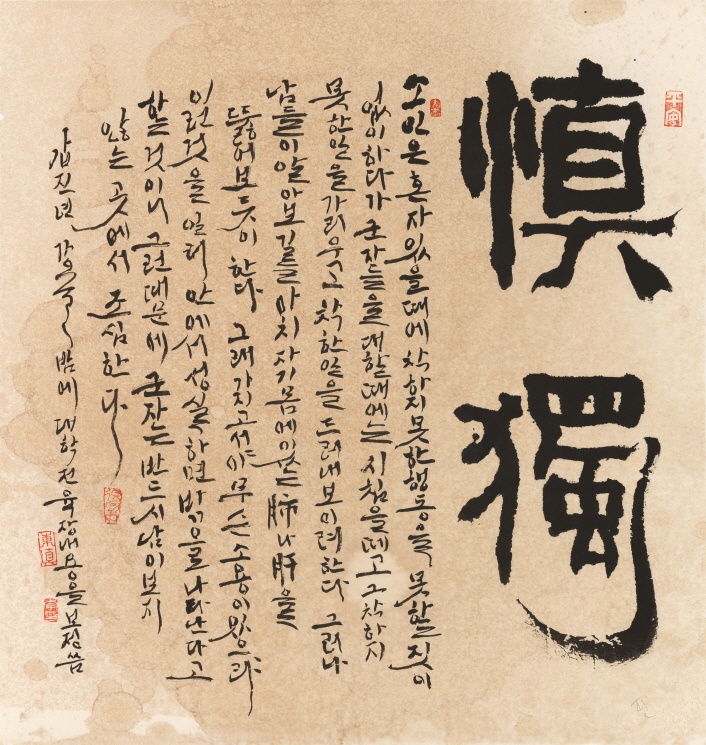 愼獨
소인은 혼자 있을 때에 착하지 못한 행동을 못할 짓이
없이 하다가 군자들을 대할 때에는 시침을 떼고 그 착하지
못한 일을 가리우고 착한 일을 드러내보이려 한다 그러나
남들이 알아보길를 마치 자기 몸에 있는 肺나 肝을
뚫어보듯이 한다 그래가지고서야 무슨 소용이 있으랴
이런것을 일러 안에서 성실하면 밖으로 나타난다고
할 것이니 그런 때문에 군자는 반드시 남이 보지
않는 곳에서 조심한다
갑진년 가을 밤에 대학전 육장 내용을 보정 씀